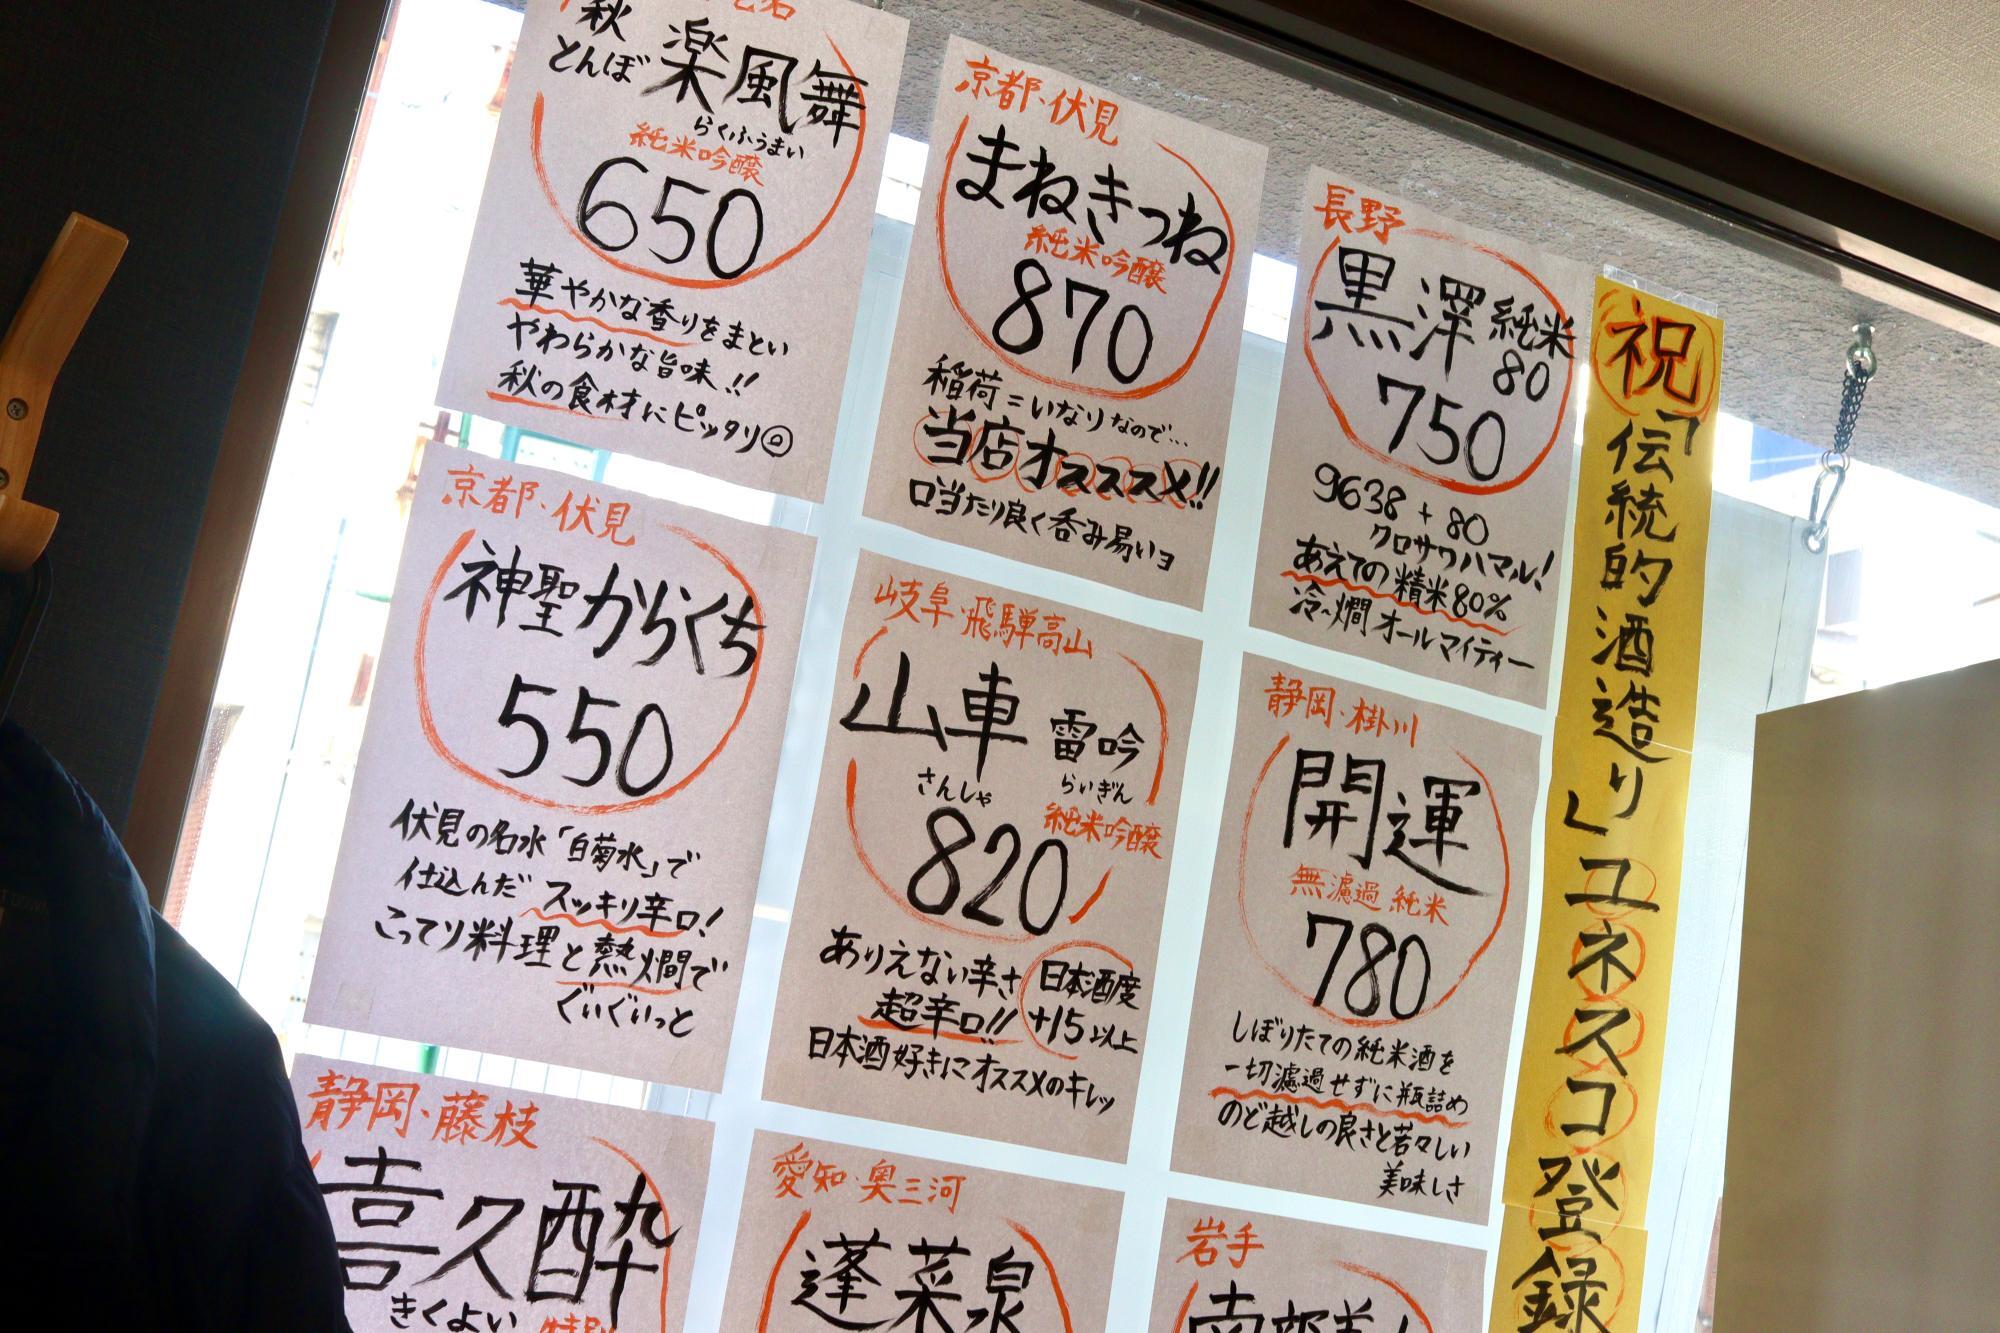 秋
とんぼ 楽風舞
らくふうまい
純米吟醸
650
華やかな香りをまとい
やわらかな旨味!!
秋の食材にピッタリ
京都・伏見
まねきつね
純米吟醸
870
稲荷=いなりなので…
当店オススメ!!
口当たり良く呑み易いヨ
長野
黒澤 純米
80
750
9638+80
クロサワハマル!
あえての精米80%
冷〜燗オールマイティー
祝
「伝統的酒造り」ユネスコ登録
京都・伏見
神聖からくち
550
伏見の名水「白菊水」で
仕込んだスッキリ辛口!
こってり料理と熱燗で
ぐいぐいっと
岐阜・飛騨高山
山車 雷吟
さんしゃ らいぎん
純米吟醸
820
ありえない辛さ
超辛口!!
日本酒度
+15以上
日本酒好きにオススメのキレッ
静岡・掛川
開運
無濾過 純米
780
しぼりたての純米酒を
一切濾過せずに瓶詰め
のど越しの良さと若々しい
美味しさ
静岡・藤枝
喜久酔
きくよい
特別
愛知・奥三河
蓬莱泉
岩手
南部美人